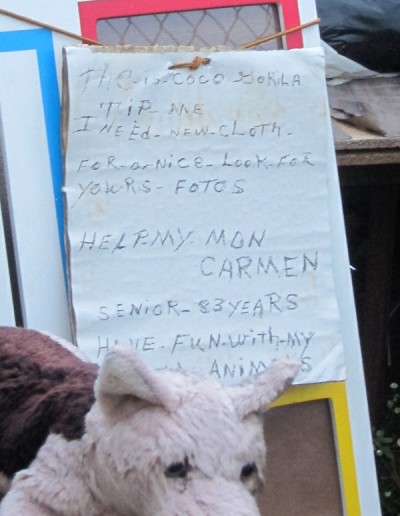 THE-IS-COCO-GORILA
TIP-ME
I NEEd-NEW-CLOTH-
FOR-a-NICE-LOOK-FOR
YOURS-FOTOS
HELP-MY MON
CARMEN
SENIOR-83 YEARS
HAVE-FUN-WITH-MY
ANIMALS